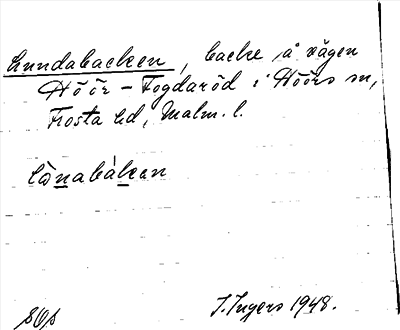 Lundabacken, backe å vägen
Höör – Fogdaröd i Höörs sn,
Frosta hd, Malm. l.
lùnabàkan
J. Ingers 1948.